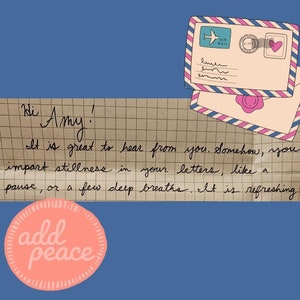 Hi Amy!
It is great to hear from you. Somehow, you
impart stillness in your letters, like a
pause, or a few deep breaths. It is refreshing
add
peace